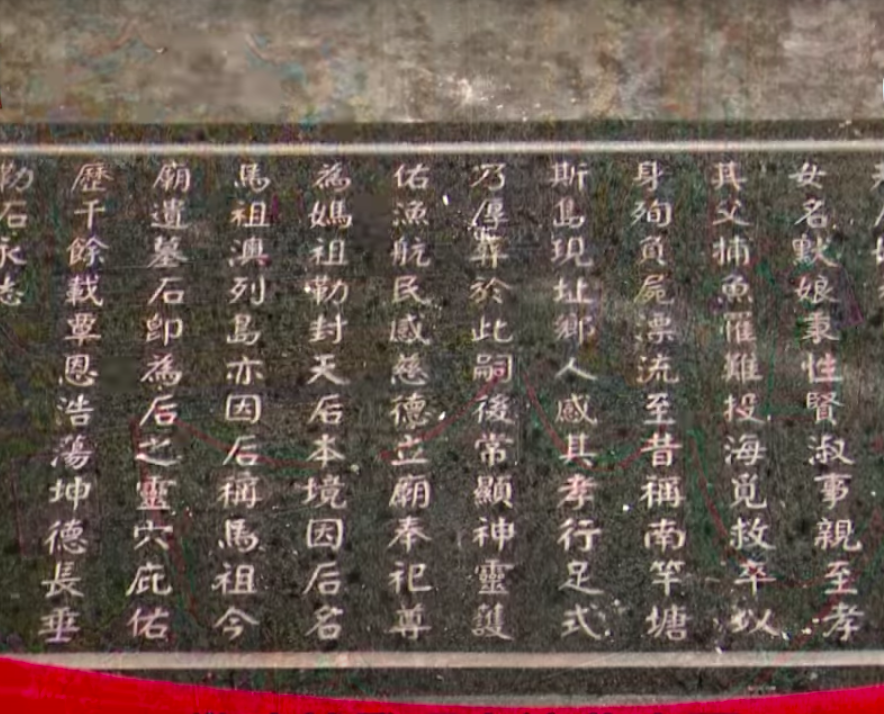 女名默娘秉性賢淑事親至孝
其父捕魚罹難投海覓救卒以
身殉負屍漂流至昔稱南竿塘
斯島現址鄉人感其孝行足式
乃厚葬於此嗣後常顯神靈護
佑漁航民感慈德立廟奉祀尊
為媽祖勒封天后本境因后名
馬祖澳列島亦因后稱馬祖今
廟遺墓石卽為后之靈穴庇佑
歷千餘載覃恩浩蕩坤德長垂
勒石永志